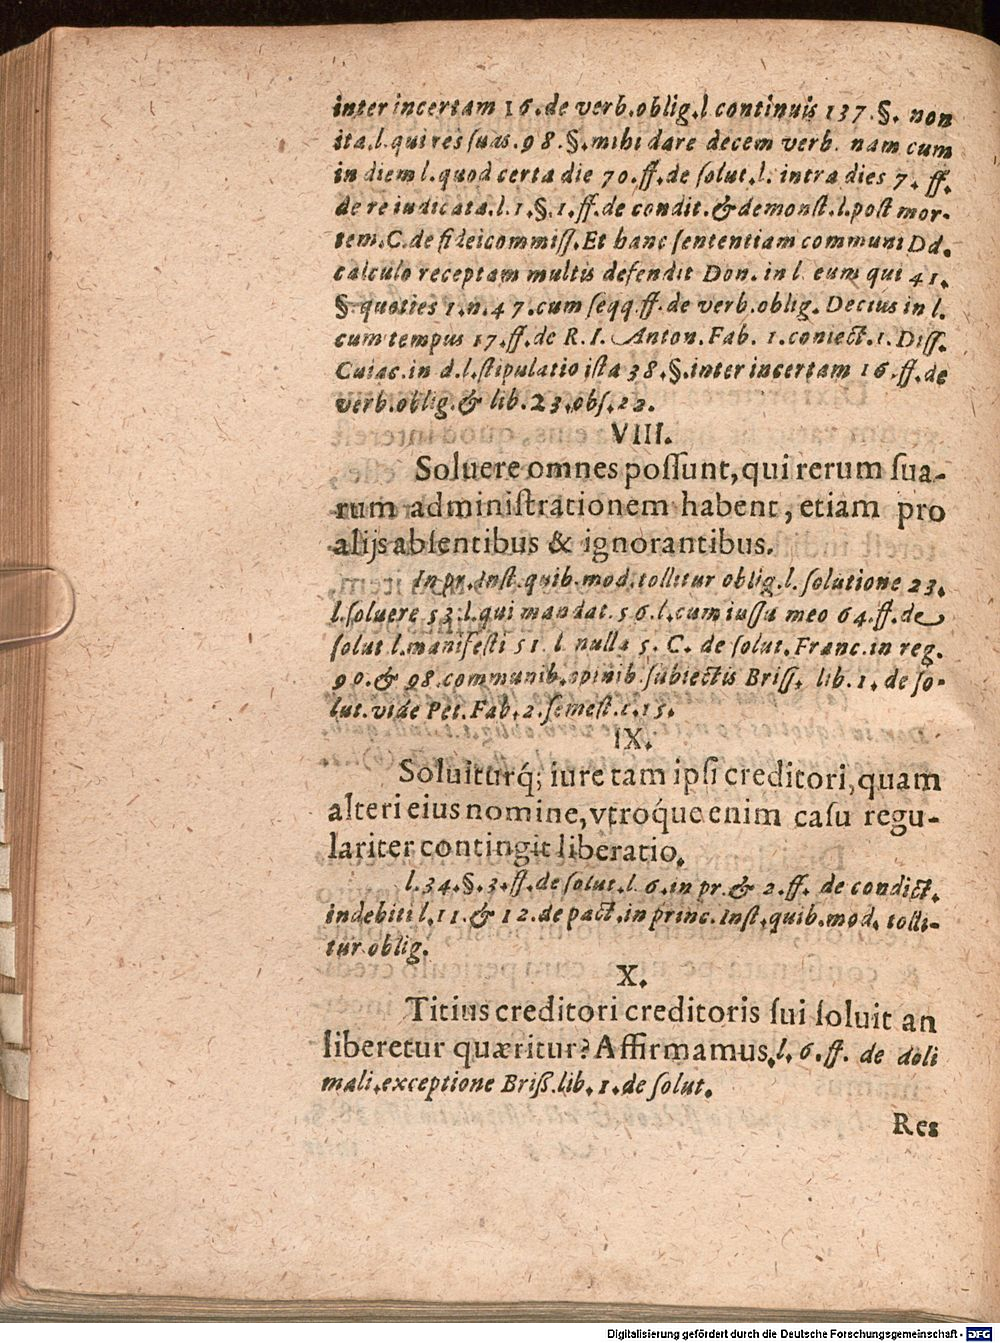 inter incertam 16. de verb. oblig. l continuis 137. §. non
ita. l. qui res ſuas. 98. §. mihi dare decem verb. nam cum
in diem l. quod certa die 70. ff. de ſolut. l. intra dies 7. ff.
de re iudicata. l. 1. §. 1. ff. de condit. & demonſt. l. poſt mor-
tem. C. de fideicommiſſ. Et hanc ſententiam communi Dd.
calculo receptam multis defendit Don. in l eum qui 41.
§. quoties 1. n. 47. cum ſeqq. ff. de verb. oblig. Decius in l.
cum tempus 17. ff. de R. I. Anton. Fab. 1. coniect. 1. Diſſ.
Cuiac. in d. l. ſtipulatio iſta 38. §. inter incertam 16. ff. de
verb. oblig. & lib. 23. obſ. 22.
VIII.
Soluere omnes poſſunt, qui rerum ſua-
rum adminiſtrationem habent, etiam pro
alijs abſentibus & ignorantibus.
In pr. Inſt. quib. mod. tollitur oblig. l. ſolutione 23.
l. ſoluere 53. l. qui mandat. 56. l. cum iuſſu meo 64. ff. de
ſolut l. manifeſti 51. l nulla 5. C. de ſolut. Franc. in reg.
90. & 98. communib. opinib. ſubiectis Briſſ. lib. 1. de ſo-
lut. vide Pet. Fab. 2. ſemeſt. c. 15.
IX.
Soluiturq́; iure tam ipſi creditori, quam
alteri eius nomine, vtroq́ue enim caſu regu-
lariter contingit liberatio.
l. 34. §. 3. ff. de ſolut. l 6. in pr. & 2. ff. de condict.
indebiti l. 11. & 12. de pact. in princ. Inſt. quib. mod. tolli-
tur oblig.
X.
Titius creditori creditoris ſui ſoluit an
liberetur quæritur? Affirmamus. l. 6. ff. de doli
mali. exceptione Briß. lib. 1. de ſolut.
Res
Digitalisierung gefördert durch die Deutsche Forschungsgemeinschaft - DFG